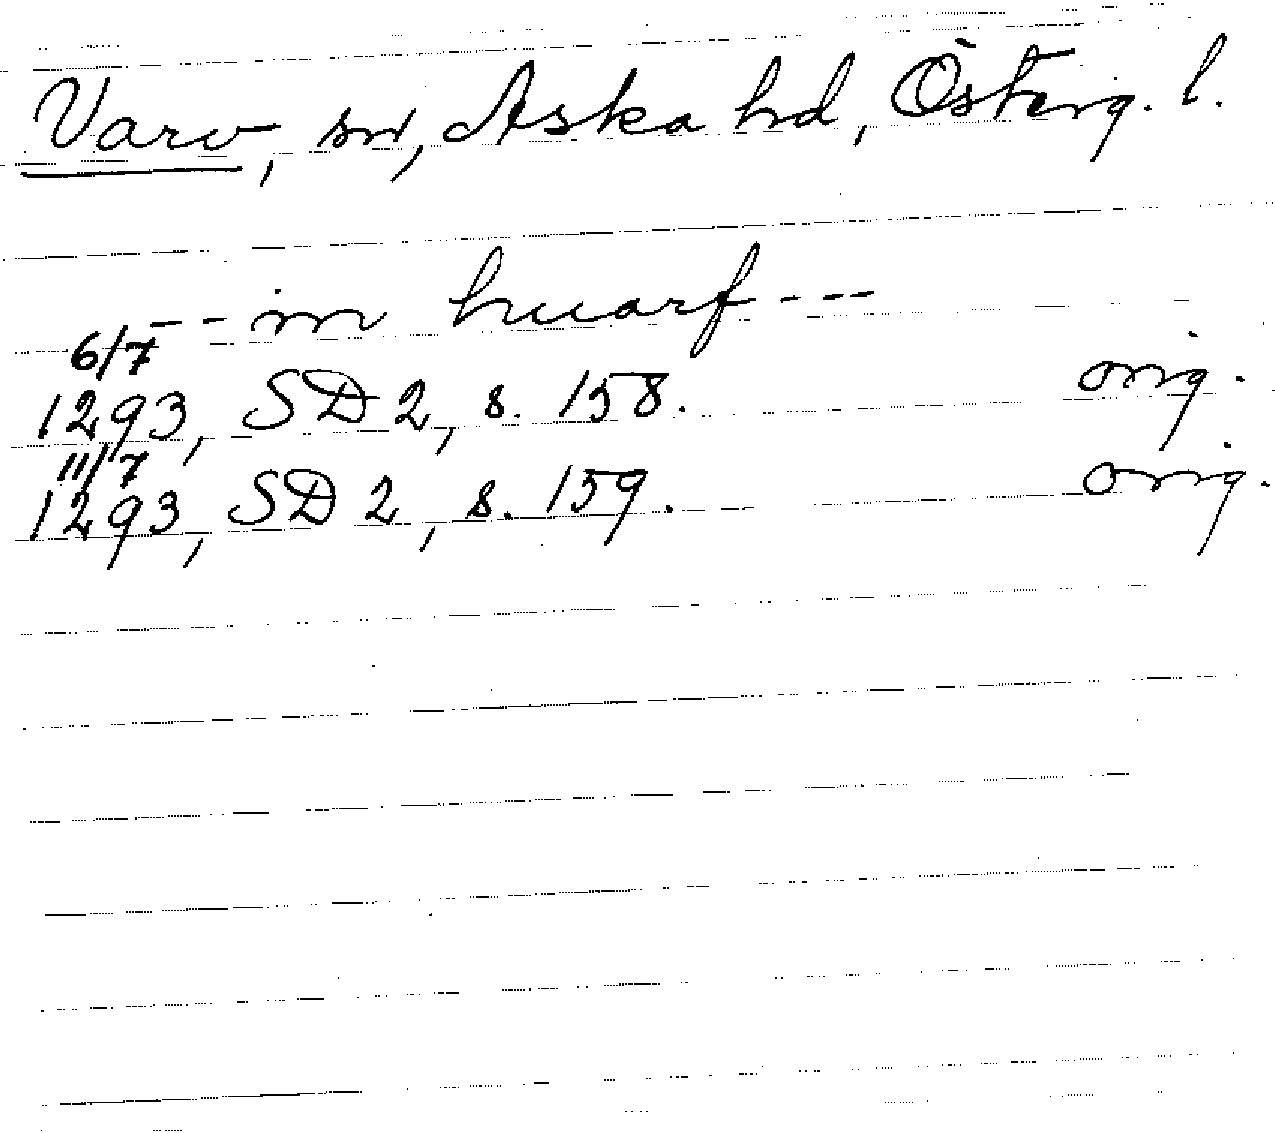 Varv, sn, Aska hd, Österg. l.
--- in huarf ---
6/7
1293, SD 2, s. 158. orig.
11/7
1293, SD 2, s. 159. orig.